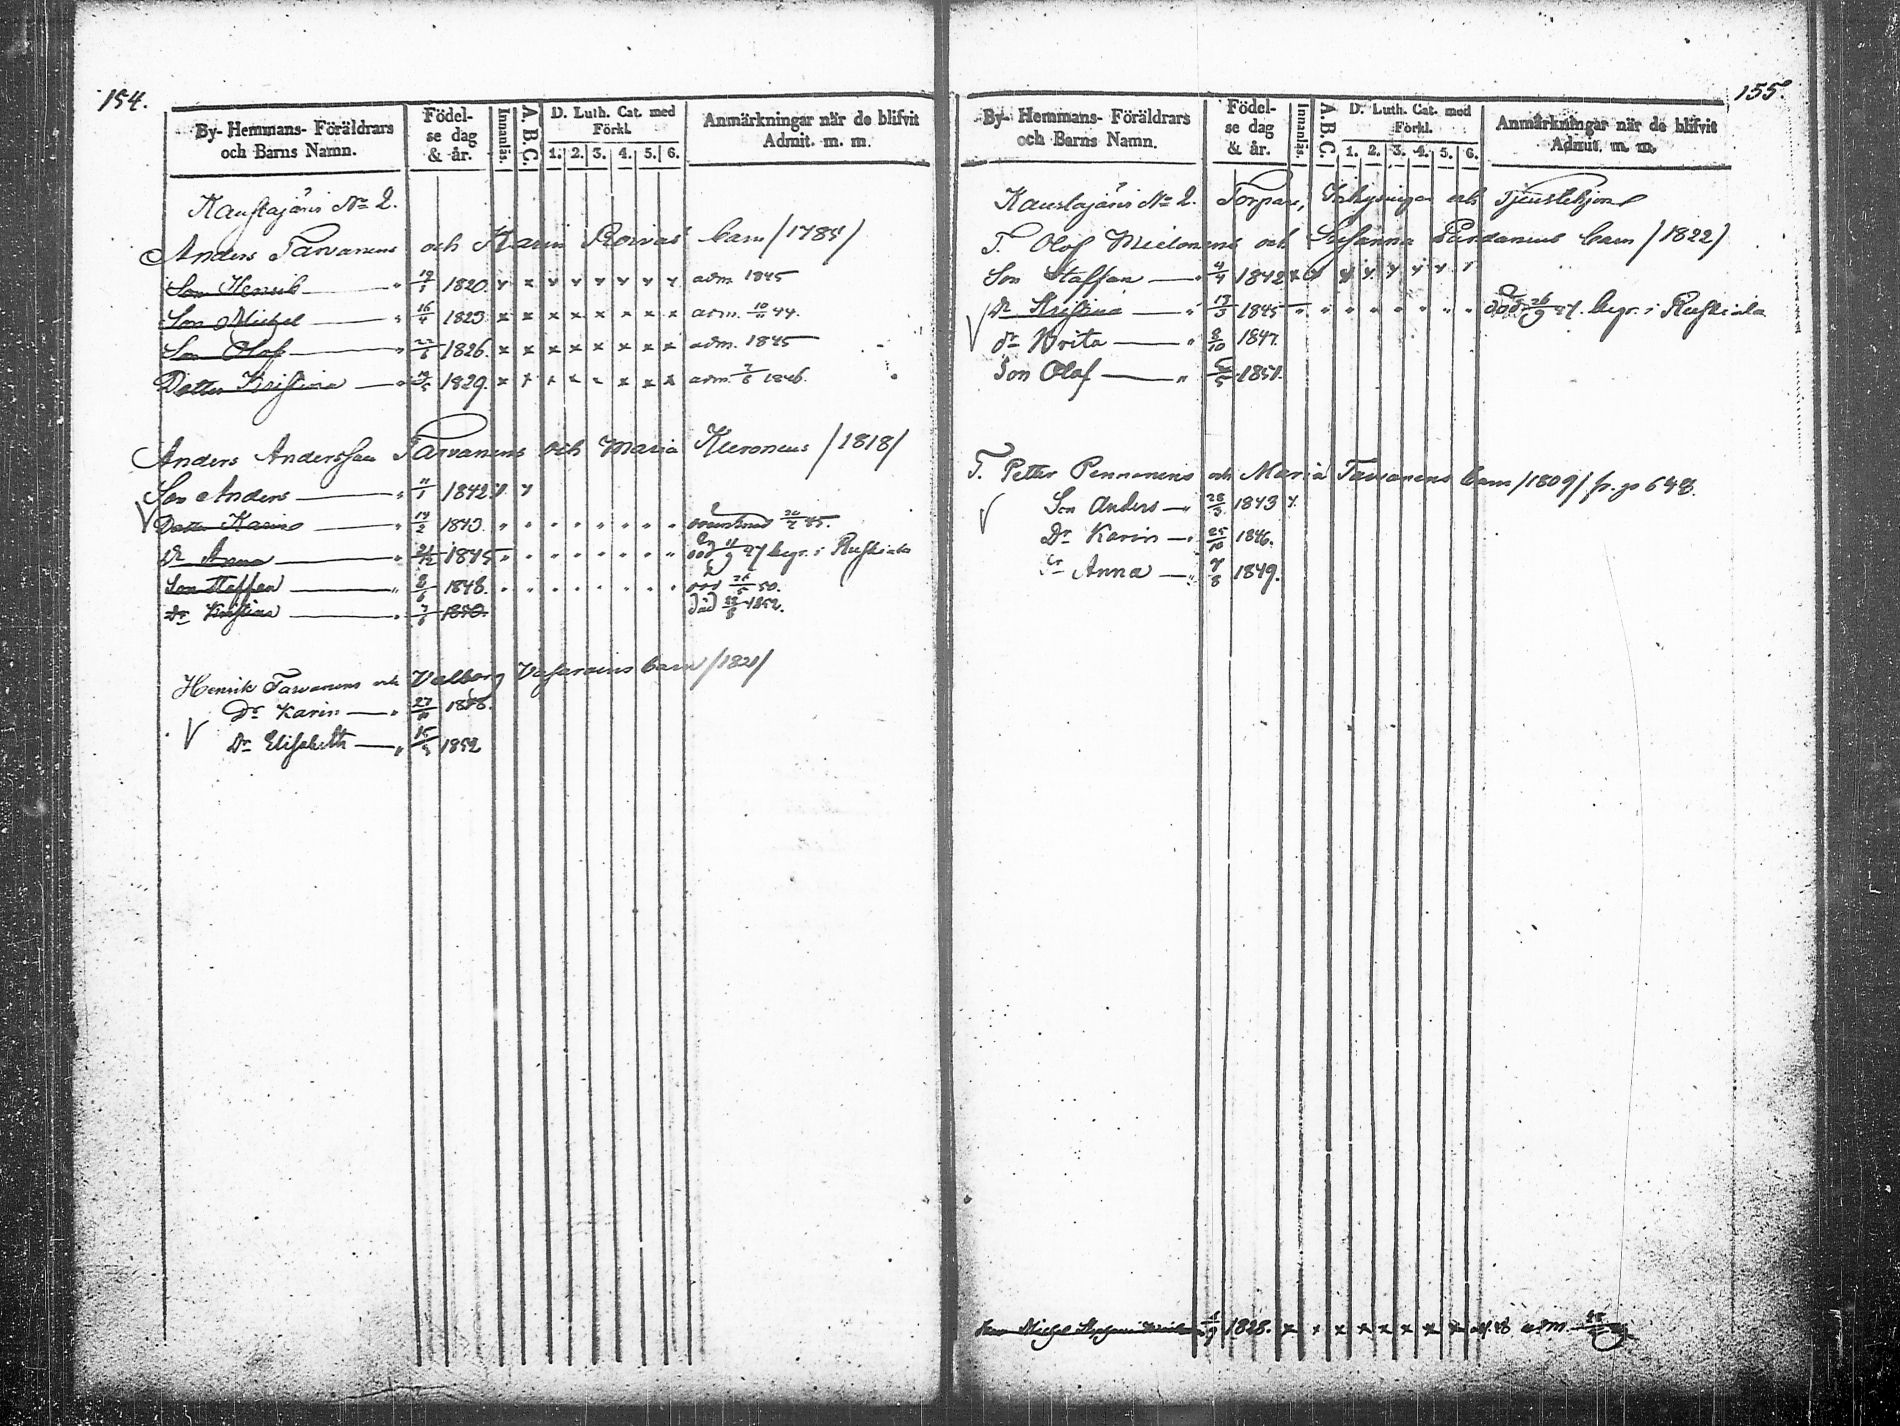 154.
By- Hemmans- Föräldrars och Barns Namn.
Födelse dag & år.
Innanläs.
A. B. C.
D. Luth. Cat. med Förkl.
1. 2. 3. 4. 5. 6.
Anmärkningar när de blifvit Admit. m. m.
Kaustajärvi No 2.
Anders Tarvanens och Karin barn /1784/
Son Henrik 1820. adm 1845
Son Michel 16/4 1823 x x x x x x x x adm. 44.
Son Olof 1826. x x x x x x x x adm. 1845
Dotter Kristina 1829. adm. 1846.
Anders Andersson Tarvanens och Maria /1818/
Son Anders 1842
Dotter Karin 1843 45.
Dr Anna 1845 död 47 begr. i Ruskiala
Son Staffan 1848. död 50.
Dr Kristina 1850. död 1852.
Henrik Tarvanens och Valborg barn /1821/
Dr Karin 27 1848.
Dr Elisabeth 15 1852
155.
By- Hemmans- Föräldrars och Barns Namn.
Födelse dag & år.
Innanläs.
A. B. C.
D. Luth. Cat. med Förkl.
1. 2. 3. 4. 5. 6.
Anmärkningar när de blifvit Admit. m. m.
Kaustajärvi No 2. Torpare, Inhysingar och Tjenstehjon
T. Olof Mielonens och Susanna barn /1822/
Son Staffan 1842
Dr Kristina 1845 död 26/9 47. begr. i Ruskiala
Dr Brita 8/10 1847.
Son Olof 1851.
T. Petter Pennanens och Maria Tarvanens barn /1809/ fr. p. 648.
Son Anders 1843
Dr Karin 25/10 1846.
Dr Anna 7/8 1849.
Michel 1828. x x x x x x x adm.